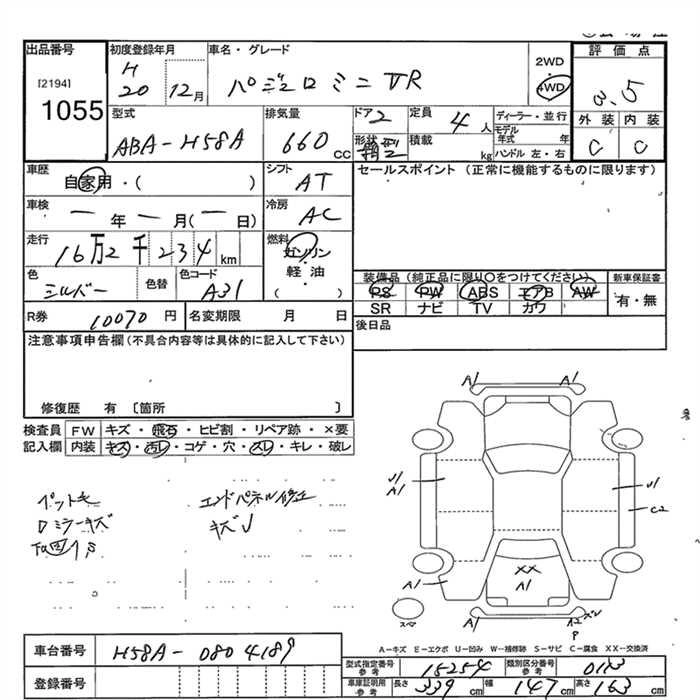 出品番号
[2194]
1055
初度登録年月
H
20 12月
車名・グレード
パジェロミニ VR
2WD
4WD
評価点
3.5
外装 内装
C C
型式
ABA-H58A
排気量
660 CC
ドア 2
形状 箱型
定員 4人
積載 kg
ディーラー・並行
モデル年式 年
ハンドル 左・右
車歴
自家用・( )
シフト
AT
セールスポイント (正常に機能するものに限ります)
車検
ー年ー月(ー日)
冷房
AC
走行
16万2千234km
燃料
ガソリン
軽・油
( )
色
シルバー
色替
色コード
A31
装備品 (純正品に限り○をつけてください)
PS PW ABS エアB AW
SR ナビ TV カワ
新車保証書
有・無
R券 10070円
名変期限 月 日
後日品
注意事項申告欄(不具合内容等は具体的に記入して下さい)
修復歴 有 〔箇所 〕
検査員記入欄
FW キズ・飛石・ヒビ割・リペア跡・×要
内装 キズ・汚レ・コゲ・穴・スレ・キレ・破レ
ペット毛
Dミラーキズ
エンドパネル修正
キズU
A1 A1
U1
A1
U1
C2
A1
XX
A1
A1
A2 ズレ
P
スマ
A-キズ E-エクボ U-凹み W-補修跡 S-サビ C-腐食 XX-交換済
車台番号 H58A-0804189
登録番号
型式指定番号 参考 15254
類別区分番号 参考 0113
車庫証明用 参考 長さ 339cm 幅 147cm 高さ 163cm